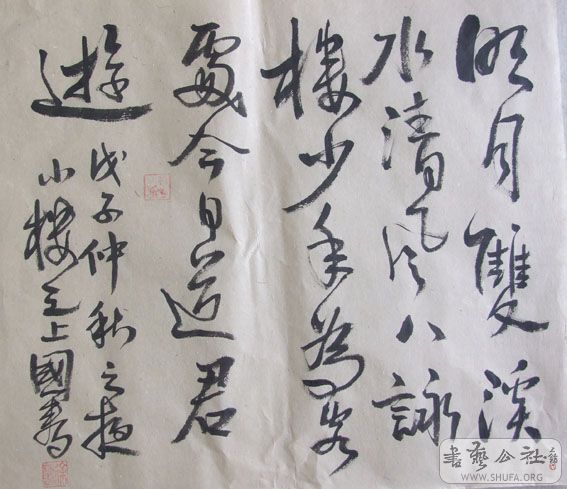 明月雙溪
水清風八詠
樓少年為客
處今日送君
遊
戊子仲秋之夜
小樓之上國書
書藝公社
WWW.SHUFA.ORG